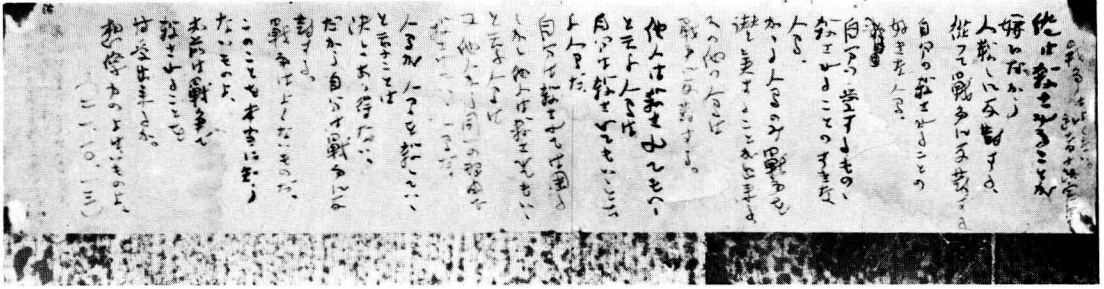 戰争はよくない。
武者小路實篤
俺は殺されることが
嫌いだから
人殺しに反對する、
從つて戰争に反對する、
自分の殺されることの
好きな人間、
自分の愛するものの
殺されることのすきな
人間、
かゝる人間のみ戰争を
讃美することが出來る。
その他の人間は
戰争に反對する。
他人は殺されてもいゝ
と云ふ人間は
自分は殺されてもいゝと云
ふ人間だ。
自分は殺されては困る
しかし他人は殺されてもいゝ
と云ふ人間は
人間が人間を殺していゝ
と云ふことは
決してあり得ない。
だから自分は戰争に反
對する。
戰争はよくないものだ。
このことを本当に知ら
ないものよ、
お前は戰争で
殺されることを
甘受出来るか。
想像力のよわいものよ。